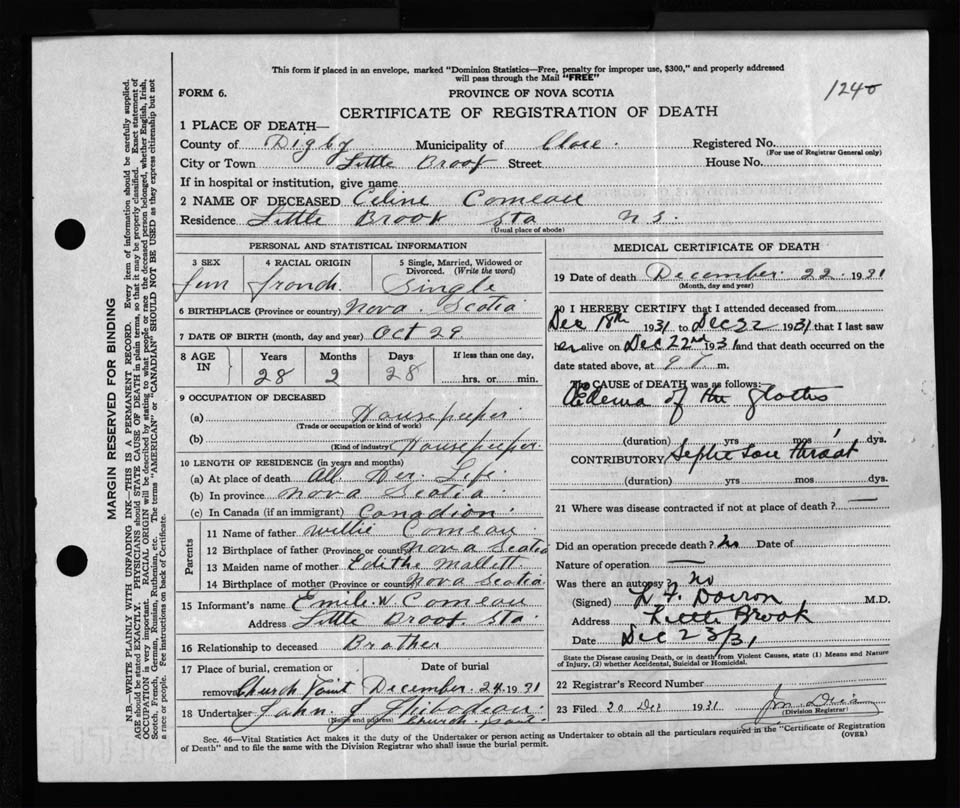 This form if placed in an envelope, marked "Dominion Statistics—Free, penalty for improper use, $300," and properly addressed
will pass through the Mail "FREE"
FORM 6. PROVINCE OF NOVA SCOTIA 1240
CERTIFICATE OF REGISTRATION OF DEATH
1 PLACE OF DEATH—
County of Digby Municipality of Clare. Registered No.
(For use of Registrar General only)
City or Town Little Brook Street House No.
If in hospital or institution, give name
2 NAME OF DECEASED Celine Comeau
Residence Little Brook Sta N S.
(Usual place of abode)
PERSONAL AND STATISTICAL INFORMATION
3 SEX 4 RACIAL ORIGIN 5 Single, Married, Widowed or
Divorced. (Write the word)
fem french. Single
6 BIRTHPLACE (Province or country) Nova. Scotia
7 DATE OF BIRTH (month, day and year) Oct 29
8 AGE IN Years Months Days If less than one day,
28 2 28 hrs. or min.
9 OCCUPATION OF DECEASED
(a) Housekeeper
(Trade or occupation or kind of work)
(b) Housekeeper.
(Kind of industry)
10 LENGTH OF RESIDENCE (in years and months)
(a) At place of death All Her Life.
(b) In province Nova Scotia
(c) In Canada (if an immigrant) Canadion.
Parents
11 Name of father Willie Comeau.
12 Birthplace of father (Province or country) Nova Scotia
13 Maiden name of mother Edithe Mallett
14 Birthplace of mother (Province or country) Nova Scotia
15 Informant's name Emile. W. Comeau
Address Little Brook. Sta.
16 Relationship to deceased Brother
17 Place of burial, cremation or Date of burial
removal Church Point December. 24. 1931
18 Undertaker John. J. Thibodeau.
(Name and address) Church. Point.
MEDICAL CERTIFICATE OF DEATH
19 Date of death December. 22. 1931
(Month, day and year)
20 I HEREBY CERTIFY that I attended deceased from
Dec 18th 1931 to Dec 22 1931 that I last saw
her alive on Dec 22nd 1931 and that death occurred on the
date stated above, at 9 m.
The CAUSE OF DEATH was as follows:
Œdema of the glottis
(duration) yrs mos 1 dys.
CONTRIBUTORY Septic sore throat
(duration) yrs mos dys.
21 Where was disease contracted if not at place of death? —
Did an operation precede death? No Date of
Nature of operation —
Was there an autopsy? No
(Signed) M.D.
Address Little Brook
Date Dec 23/31
State the Disease causing Death, or in death from Violent Causes, state (1) Means and Nature
of Injury, (2) whether Accidental, Suicidal or Homicidal.
22 Registrar's Record Number
23 Filed 20 Dec 1931
(Division Registrar)
Sec. 46—Vital Statistics Act makes it the duty of the Undertaker or person acting as Undertaker to obtain all the particulars required in the "Certificate of Registration
of Death" and to file the same with the Division Registrar who shall issue the burial permit. (OVER)
MARGIN RESERVED FOR BINDING
N.B.—WRITE PLAINLY WITH UNFADING INK—THIS IS A PERMANENT RECORD. Every item of information should be carefully supplied.
AGE should be stated EXACTLY. PHYSICIANS should STATE CAUSE OF DEATH in plain terms, so that it may be properly classified. Exact statement of
OCCUPATION is very important. RACIAL ORIGIN will be described by stating to what people or race the deceased person belonged, whether English, Irish,
Scotch, French, German, Russian, Ruthenian, etc. The terms "AMERICAN" or "CANADIAN" SHOULD NOT BE USED as they express citizenship but not
a race or people. Fee instructions on back of Certificate.